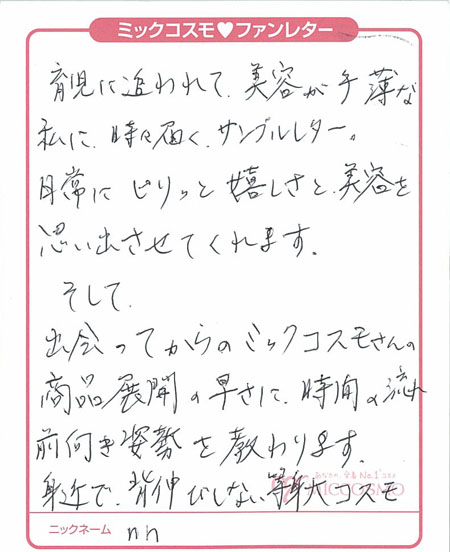 ミックコスモ♥ファンレター
育児に追われて、美容が手薄な
私に、時々届く、サンプルレター。
日常に ピリッと 嬉しさと、美容を
思い出させてくれます。
そして、
出会ってからのミックコスモさんの
商品展開の早さに、時間の流れ
前向き姿勢を教わります。
身近で、背伸びしない等身大コスモ
No.1
MICCOSMO
ニックネーム nn